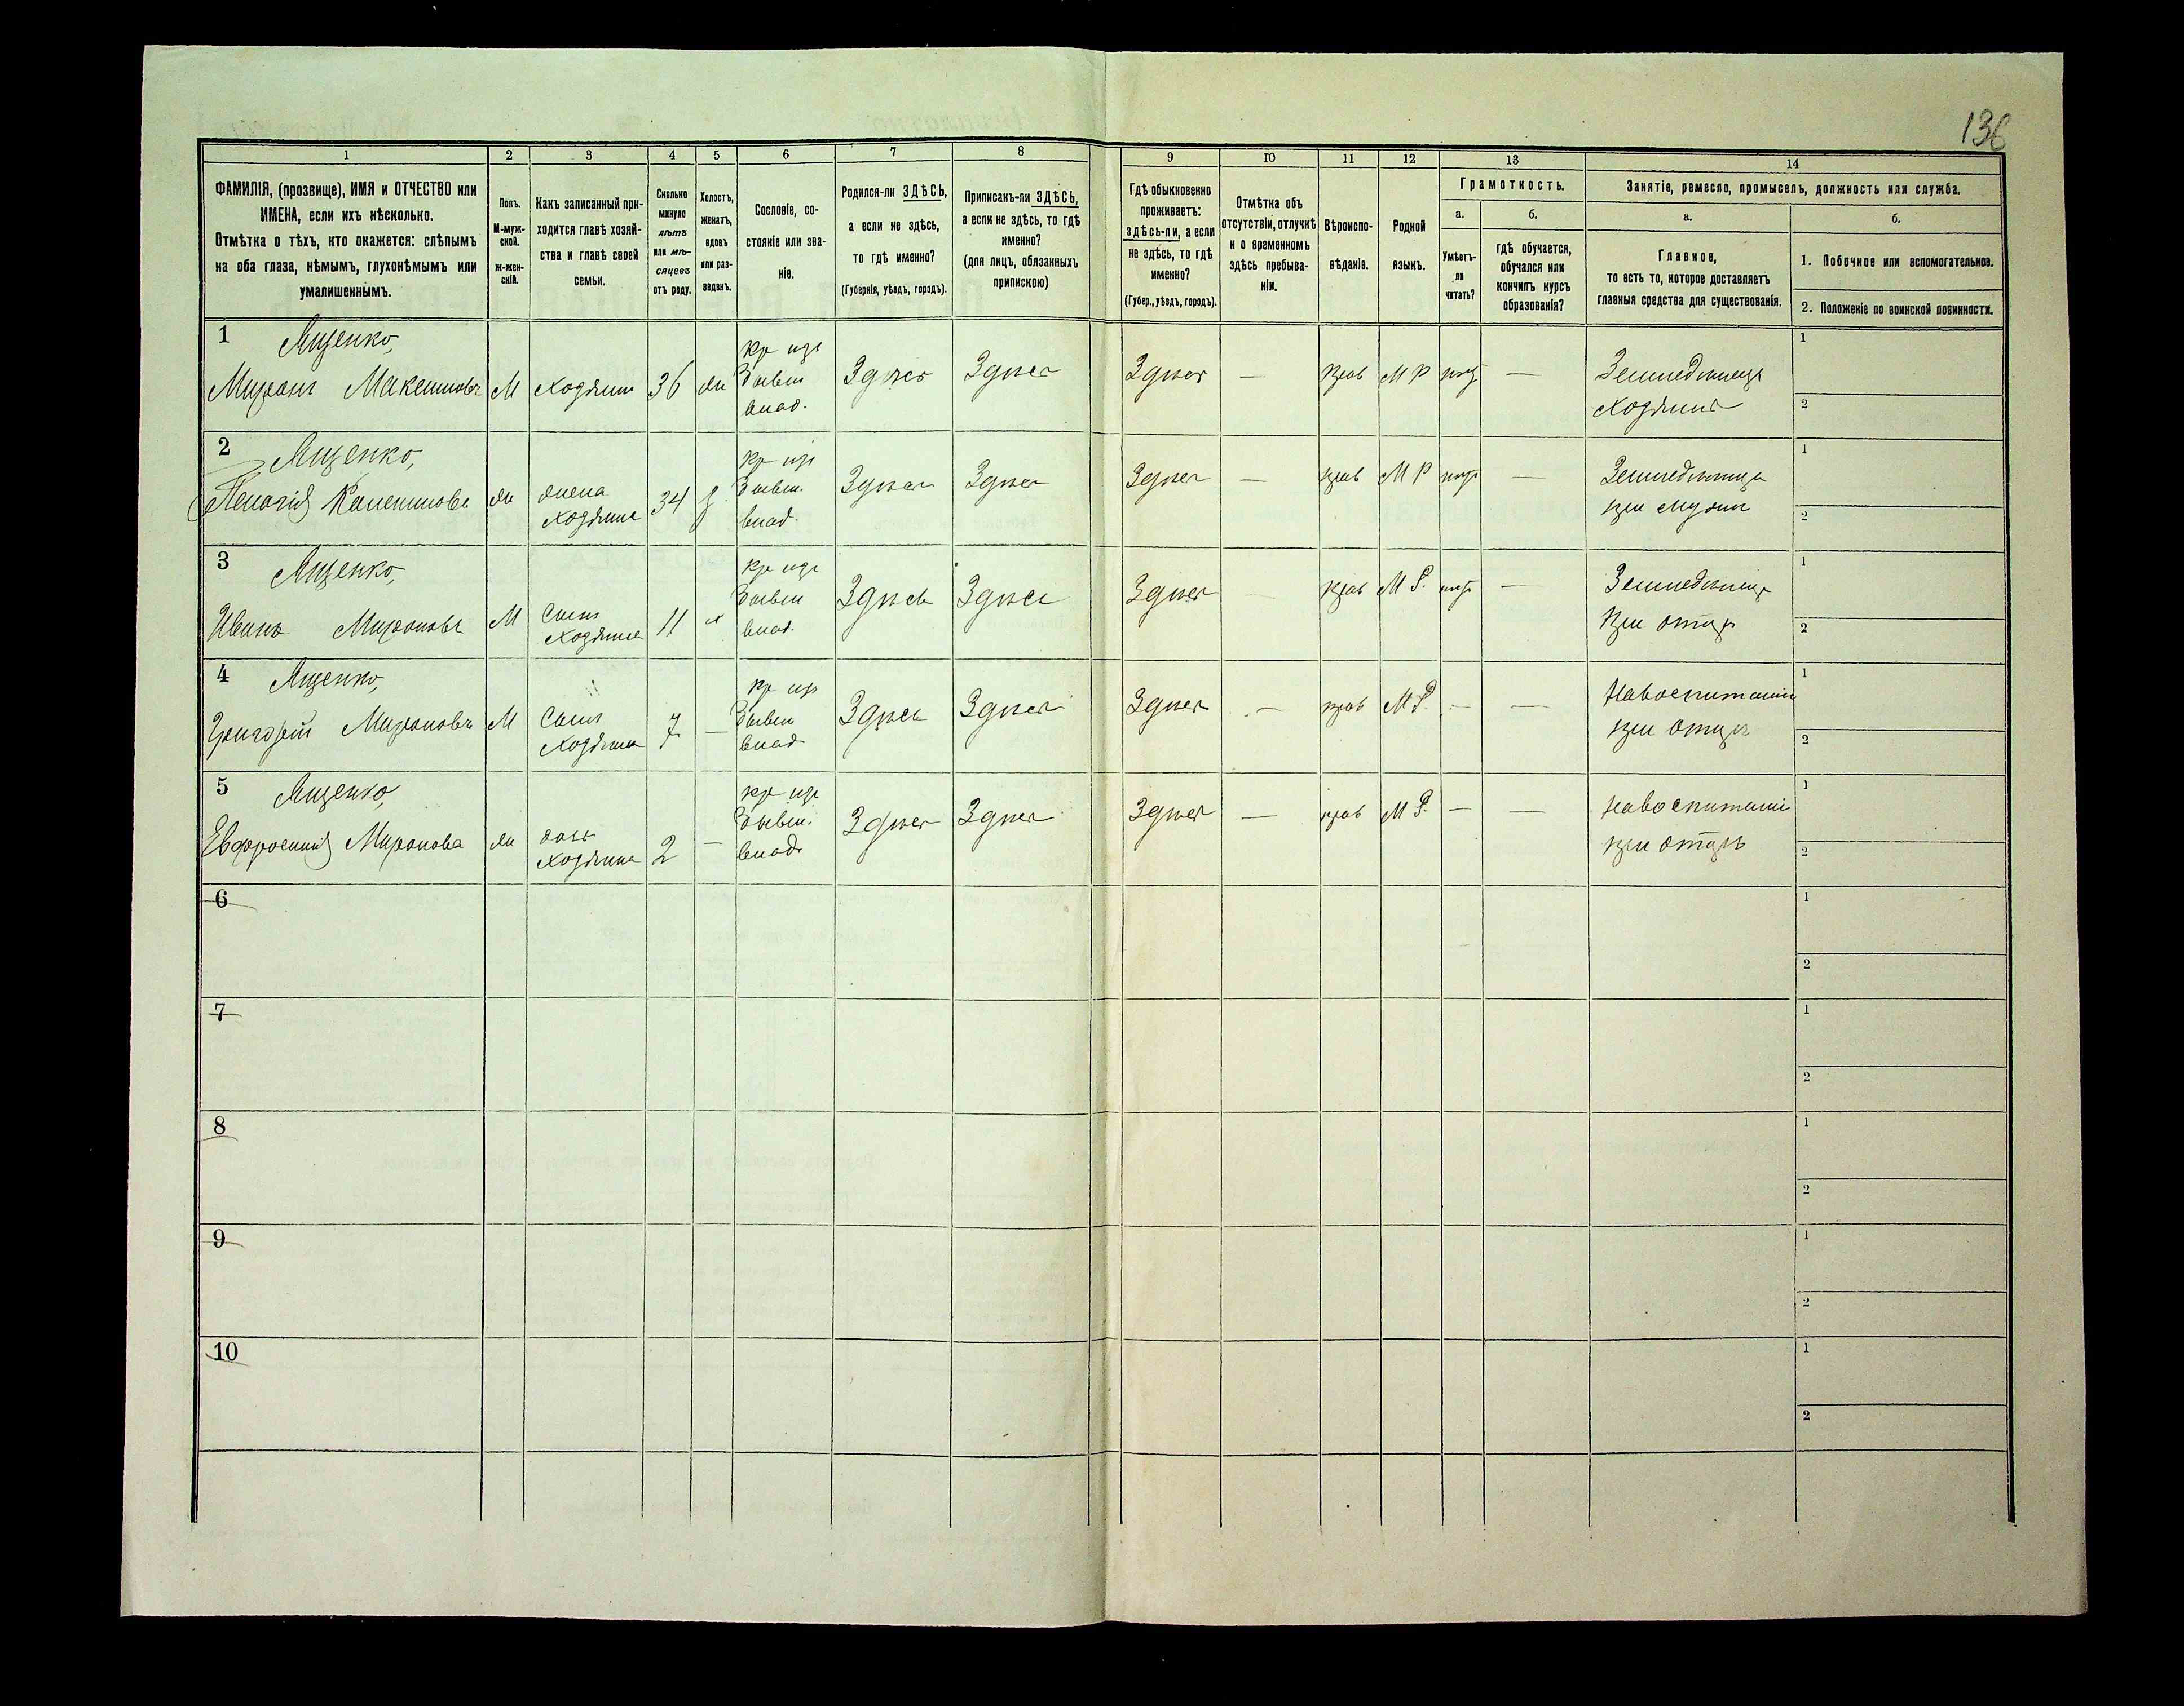 136
1 2 3 4 5 6 7 8 9 10 11 12 13 14
ФАМИЛІЯ, (прозвище), ИМЯ и ОТЧЕСТВО или
ИМЕНА, если ихъ нѣсколько.
Отмѣтка о тѣхъ, кто окажется: слѣпымъ
на оба глаза, нѣмымъ, глухонѣмымъ или
умалишеннымъ.
Полъ.
М-муж-
ской.
Ж-жен-
скій.
Какъ записанный при-
ходится главѣ хозяй-
ства и главѣ своей
семьи.
Сколько
минуло
лѣтъ
или мѣ-
сяцевъ
отъ роду.
Холостъ,
женатъ,
вдовъ
или раз-
веденъ.
Сословіе, со-
стояніе или зва-
ніе.
Родился-ли ЗДѢСЬ,
а если не здѣсь,
то гдѣ именно?
(Губернія, уѣздъ, городъ).
Приписанъ-ли ЗДѢСЬ,
а если не здѣсь, то гдѣ
именно?
(для лицъ, обязанныхъ
припискою)
Гдѣ обыкновенно
проживаетъ:
здѣсь-ли, а если
не здѣсь, то гдѣ
именно?
(Губер., уѣздъ, городъ).
Отмѣтка объ
отсутствіи, отлучкѣ
и о временномъ
здѣсь пребыва-
ніи.
Вѣроиспо-
вѣданіе.
Родной
языкъ.
Грамотность.
а.
Умѣетъ-
ли
читать?
б.
гдѣ обучается,
обучался или
кончилъ курсъ
образованія?
Занятіе, ремесло, промыселъ, должность или служба.
а.
Главное,
то есть то, которое доставляетъ
главныя средства для существованія.
б.
1. Побочное или вспомогательное.
2. Положеніе по воинской повинности.
1 Ященко,
Миронъ Максимовъ М Хозяинъ 36 жн
кр изъ
бывш
влад.
Здѣсь Здѣсь Здѣсь — прав М Р нѣтъ —
Земледѣлецъ
Хозяинъ
1
2
2 Ященко,
Пелагія жн
жена
хозяина
34 з
кр изъ
бывш.
влад.
Здѣсь Здѣсь Здѣсь — прав М Р нѣтъ —
Земледѣлица
при мужѣ
1
2
3 Ященко,
Иванъ Мироновъ М
Сынъ
Хозяина
11 х
кр изъ
бывш
влад.
Здѣсь Здѣсь Здѣсь — прав М Р. нѣтъ —
Земледѣлецъ
при отцѣ
1
2
4 Ященко,
Григорій Мироновъ М
Сынъ
Хозяина
7 —
кр изъ
бывш
влад
Здѣсь Здѣсь Здѣсь — прав М Р. — —
На воспитаніи
при отцѣ
1
2
5 Ященко,
Евфросинія Миронова жн
дочь
хозяина
2 —
кр изъ
бывш.
влад.
Здѣсь Здѣсь Здѣсь — прав М Р. — —
На воспитаніи
при отцѣ
1
2
6
1
2
7
1
2
8
1
2
9
1
2
10
1
2